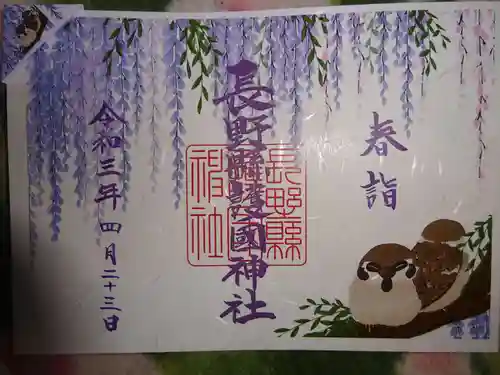 春詣
長野縣護國神社
令和三年 四月二十三日
長野縣
神社